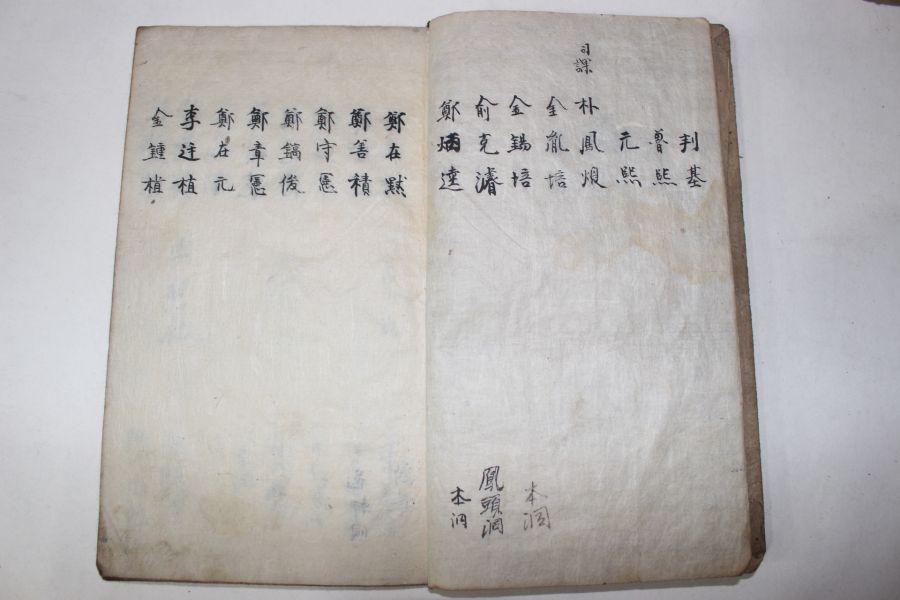 判基
魯熙
元熙
司課
朴鳳煥
金胤培
金錫培
本洞
俞克濬
鳳頭洞
鄭炳達
本洞
鄭在默
鄭善積
鄭守憲
鄭鎬俊
鄭章憲
鄭在元
李廷植
金鍾植